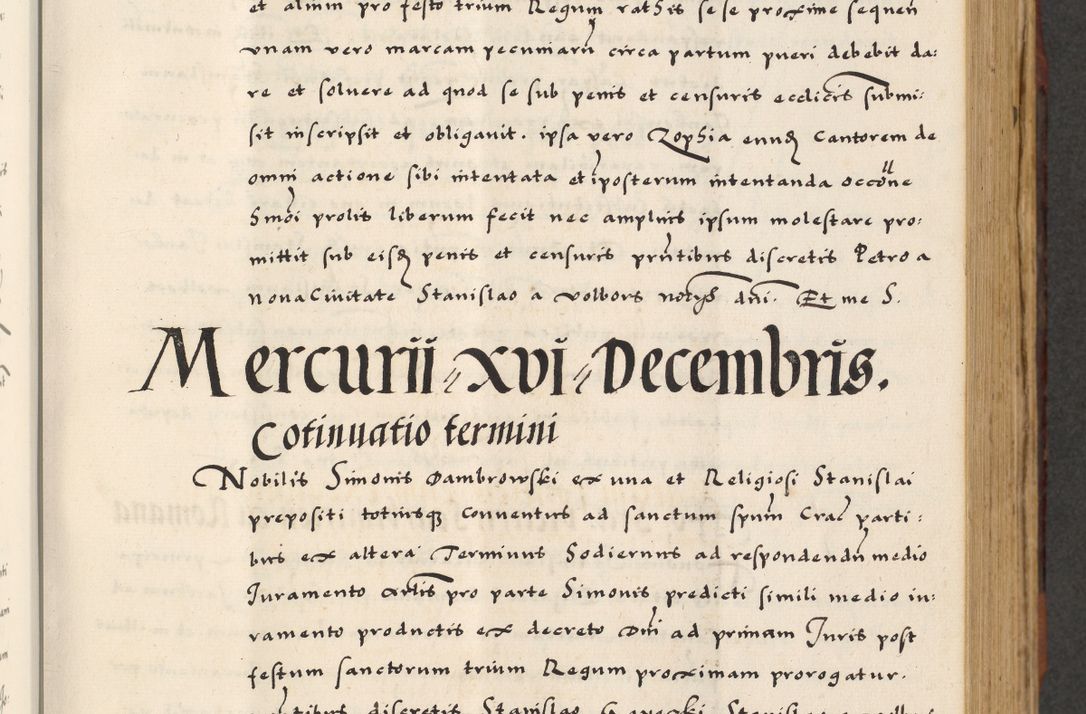 et alium pro festo trium Regum rathis sese proxime sequen
vnam vero marcam pecuniarū circa partum pueri debebit da:
re et soluere ad quod se sub penis et censuris ecclicis submi:
sit inscripsit et obligauit. ipsa vero Zophia eundē Cantorem de
omni actione sibi intentata et iposterum intentanda occōne
hmōi prolis liberum fecit nec amplius ipsum molestare pro:
mittit sub eisdē penis et censuris pn̄tibus discretis Petro a
noua Ciuitate Stanislao a volbors notariis dn̄i. Et me S.
Mercurii xvi Decembris.
Cotinuatio termini
Nobilis Simonis Dambrowski ex una et Religiosi Stanislai
prepositi totiusq conuentus ad sanctum spūm Crac parti:
bus ex altera Terminus hodiernus ad respondendū medio
Juramento artlis pro parte Simonis predicti simili medio iu:
ramento productis ex decreto Dn̄i ad primam Juris post
festum sanctorum trium Regum proximam prorogatur.
discretis Stanislao